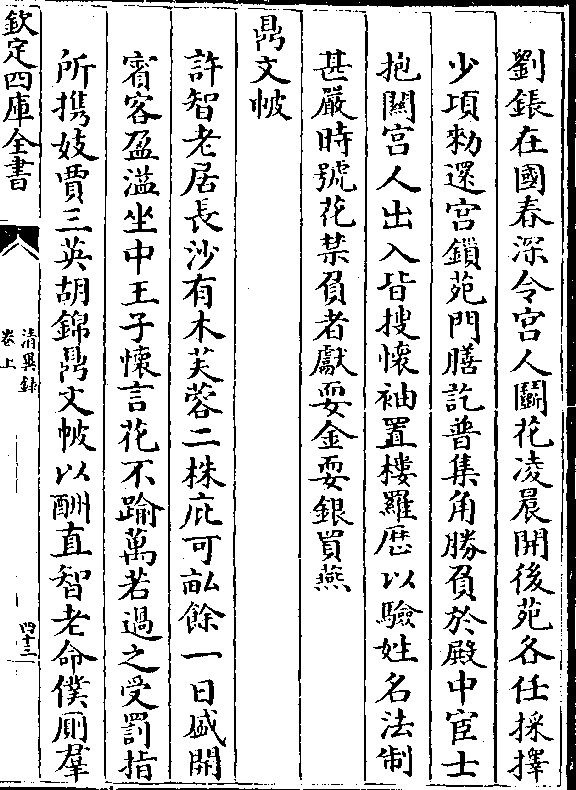 劉鋹在國春深令宮人鬭花凌晨開後苑各任採擇
少頃勅還宮鎖苑門膳訖普集角勝負於殿中宦士
抱關宮人出入皆搜懷袖置樓羅歴以驗姓名法制
甚嚴時號花禁負者獻耍金耍銀買燕
鼎文帔
許智老居長沙有木芙蓉二株庇可畝餘一日盛開
賔客盈溢坐中王子懷言花不踰萬若過之受罰指
所携妓賈三英胡錦鼎文帔以酬直智老命僕厠羣
欽定四庫全書
清異録
卷上
四十三